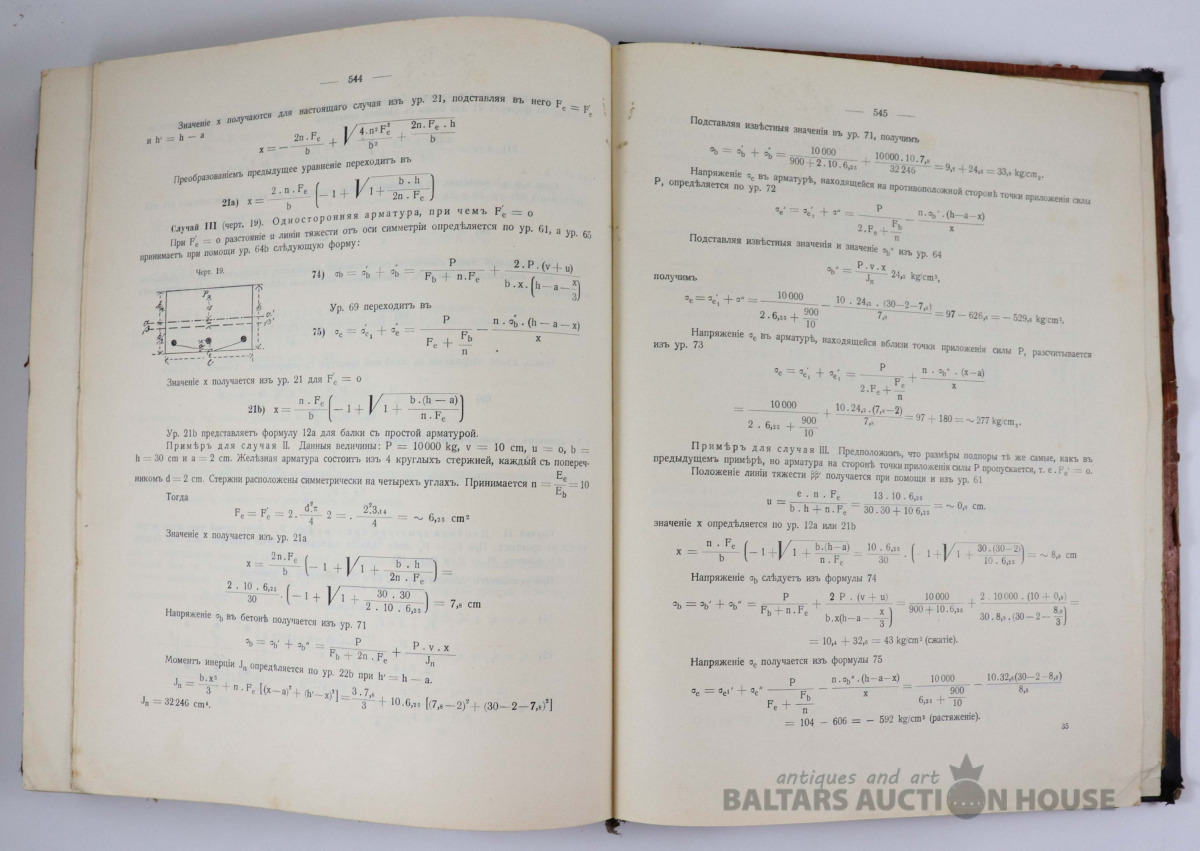 — 544 —
Значеніе x получаются для настоящаго случая изъ ур. 21, подставляя въ него F_e = F'_e
и h' = h — a
x = — 2n.F_e / b + √(4.n²F_e² / b² + 2n.F_e.h / b)
Преобразованіемъ предыдущее уравненіе переходитъ въ
21a) x = 2.n.F_e / b (—1 + √(1 + b.h / 2n.F_e))
Случай III (черт. 19). Односторонняя арматура, при чемъ F'_e = o
При F'_e = o разстояніе u линіи тяжести отъ оси симметріи опредѣляется по ур. 61, а ур. 65
принимаетъ при помощи ур. 64b слѣдующую форму:
Черт. 19.
74) σ_b = σ'_b + σ''_b = P / (F_b + n.F_e) + 2.P.(v + u) / (b.x.(h—a—x/3))
Ур. 69 переходитъ въ
75) σ_e = σ'_e₁ + σ''_e = P / (F_e + F_b/n) — n.σ''_b.(h — a — x) / x
Значеніе x получается изъ ур. 21 для F'_e = o
21b) x = n.F_e / b (—1 + √(1 + b.(h — a) / n.F_e))
Ур. 21b представляетъ формулу 12a для балки съ простой арматурой.
Примѣръ для случая II. Данныя величины: P = 10000 kg, v = 10 cm, u = o, b =
h = 30 cm и a = 2 cm. Желѣзная арматура состоитъ изъ 4 круглыхъ стержней, каждый съ попереч-
никомъ d = 2 cm. Стержни расположены симметрически на четырехъ углахъ. Принимается n = E_e / E_b = 10
Тогда
F_e = F'_e = 2. d²π / 4 2 = . 2²3,14 / 4 = ~ 6,25 cm²
Значеніе x получается изъ ур. 21a
x = 2n.F_e / b (—1 + √(1 + b.h / 2n.F_e)) =
2.10.6,25 / 30 .(—1 + √(1 + 30.30 / 2.10.6,25)) = 7,8 cm
Напряженіе σ_b въ бетонѣ получается изъ ур. 71
σ_b = σ_b' + σ_b'' = P / (F_b + 2n.F_e) + P.v.x / J_n
Моментъ инерціи J_n опредѣляется по ур. 22b при h' = h — a.
J_n = b.x³ / 3 + n.F_e [(x—a)² + (h'—x)²] = 3.7,8 / 3 + 10.6,25 [(7,8—2)² + (30—2—7,8)²]
J_n = 32246 cm⁴.
— 545 —
Подставляя извѣстныя значенія въ ур. 71, получимъ
σ_b = σ'_b + σ''_b = 10000 / (900 + 2.10.6,25) + 10000.10.7,8 / 32246 = 9,8 + 24,2 = 33,9 kg/cm².
Напряженіе σ_e въ арматурѣ, находящейся на противоположной сторонѣ точки приложенія силы
P, опредѣляется по ур. 72
σ_e' = σ'_e₁ + σ'' = P / (2.F_e + F_b/n) — n.σ_b''.(h—a—x) / x
Подставляя извѣстныя значенія и значеніе σ_b'' изъ ур. 64
σ_b'' = P.v.x / J_n 24,2 kg/cm²,
получимъ
σ_e = σ_e'₁ + σ'' = 10000 / (2.6,25 + 900/10) — 10.24,2.(30—2—7,8) / 7,8 = 97 — 626,8 = — 529,8 kg/cm².
Напряженіе σ_e въ арматурѣ, находящейся вблизи точки приложенія силы P, разсчитывается
изъ ур. 73
σ_e = σ'_e₁ + σ''_e₁ = P / (2.F_e + F_e/n) + n.σ_b''.(x—a) / x
= 10000 / (2.6,25 + 900/10) + 10.24,2.(7,8—2) / 7,8 = 97 + 180 = ~ 277 kg/cm².
Примѣръ для случая III. Предположимъ, что размѣры подпоры тѣ же самые, какъ въ
предыдущемъ примѣрѣ, но арматура на сторонѣ точки приложенія силы P пропускается, т. е. F_e' = o.
Положеніе линіи тяжести ββ' получается при помощи u изъ ур. 61
u = e.n.F_e / (b.h + n.F_e) = 13.10.6,25 / (30.30 + 10 6,25) = ~ 0,8 cm.
значеніе x опредѣляется по ур. 12a или 21b
x = n.F_e / b (—1 + √(1 + b.(h—a) / n.F_e)) = 10.6,25 / 30 .(—1 + √(1 + 30.(30—2) / 10.6,25)) = ~ 8,8 cm
Напряженіе σ_b слѣдуетъ изъ формулы 74
σ_b = σ_b' + σ_b'' = P / (F_b + n.F_e) + 2 P.(v + u) / (b.x(h—a—x/3)) = 10000 / (900 + 10.6,25) + 2.10000.(10 + 0,8) / (30.8,8.(30—2—8,8/3)) =
= 10,4 + 32,6 = 43 kg/cm² (сжатіе).
Напряженіе σ_e получается изъ формулы 75
σ_e = σ_e₁' + σ_e'' P / (F_e + F_b/n) — n.σ_b''.(h—a—x) / x = 10000 / (6,25 + 900/10) — 10.32,6(30—2—8,8) / 8,8
= 104 — 606 = — 592 kg/cm² (растяженіе).
35
antiques and art
BALTARS AUCTION HOUSE